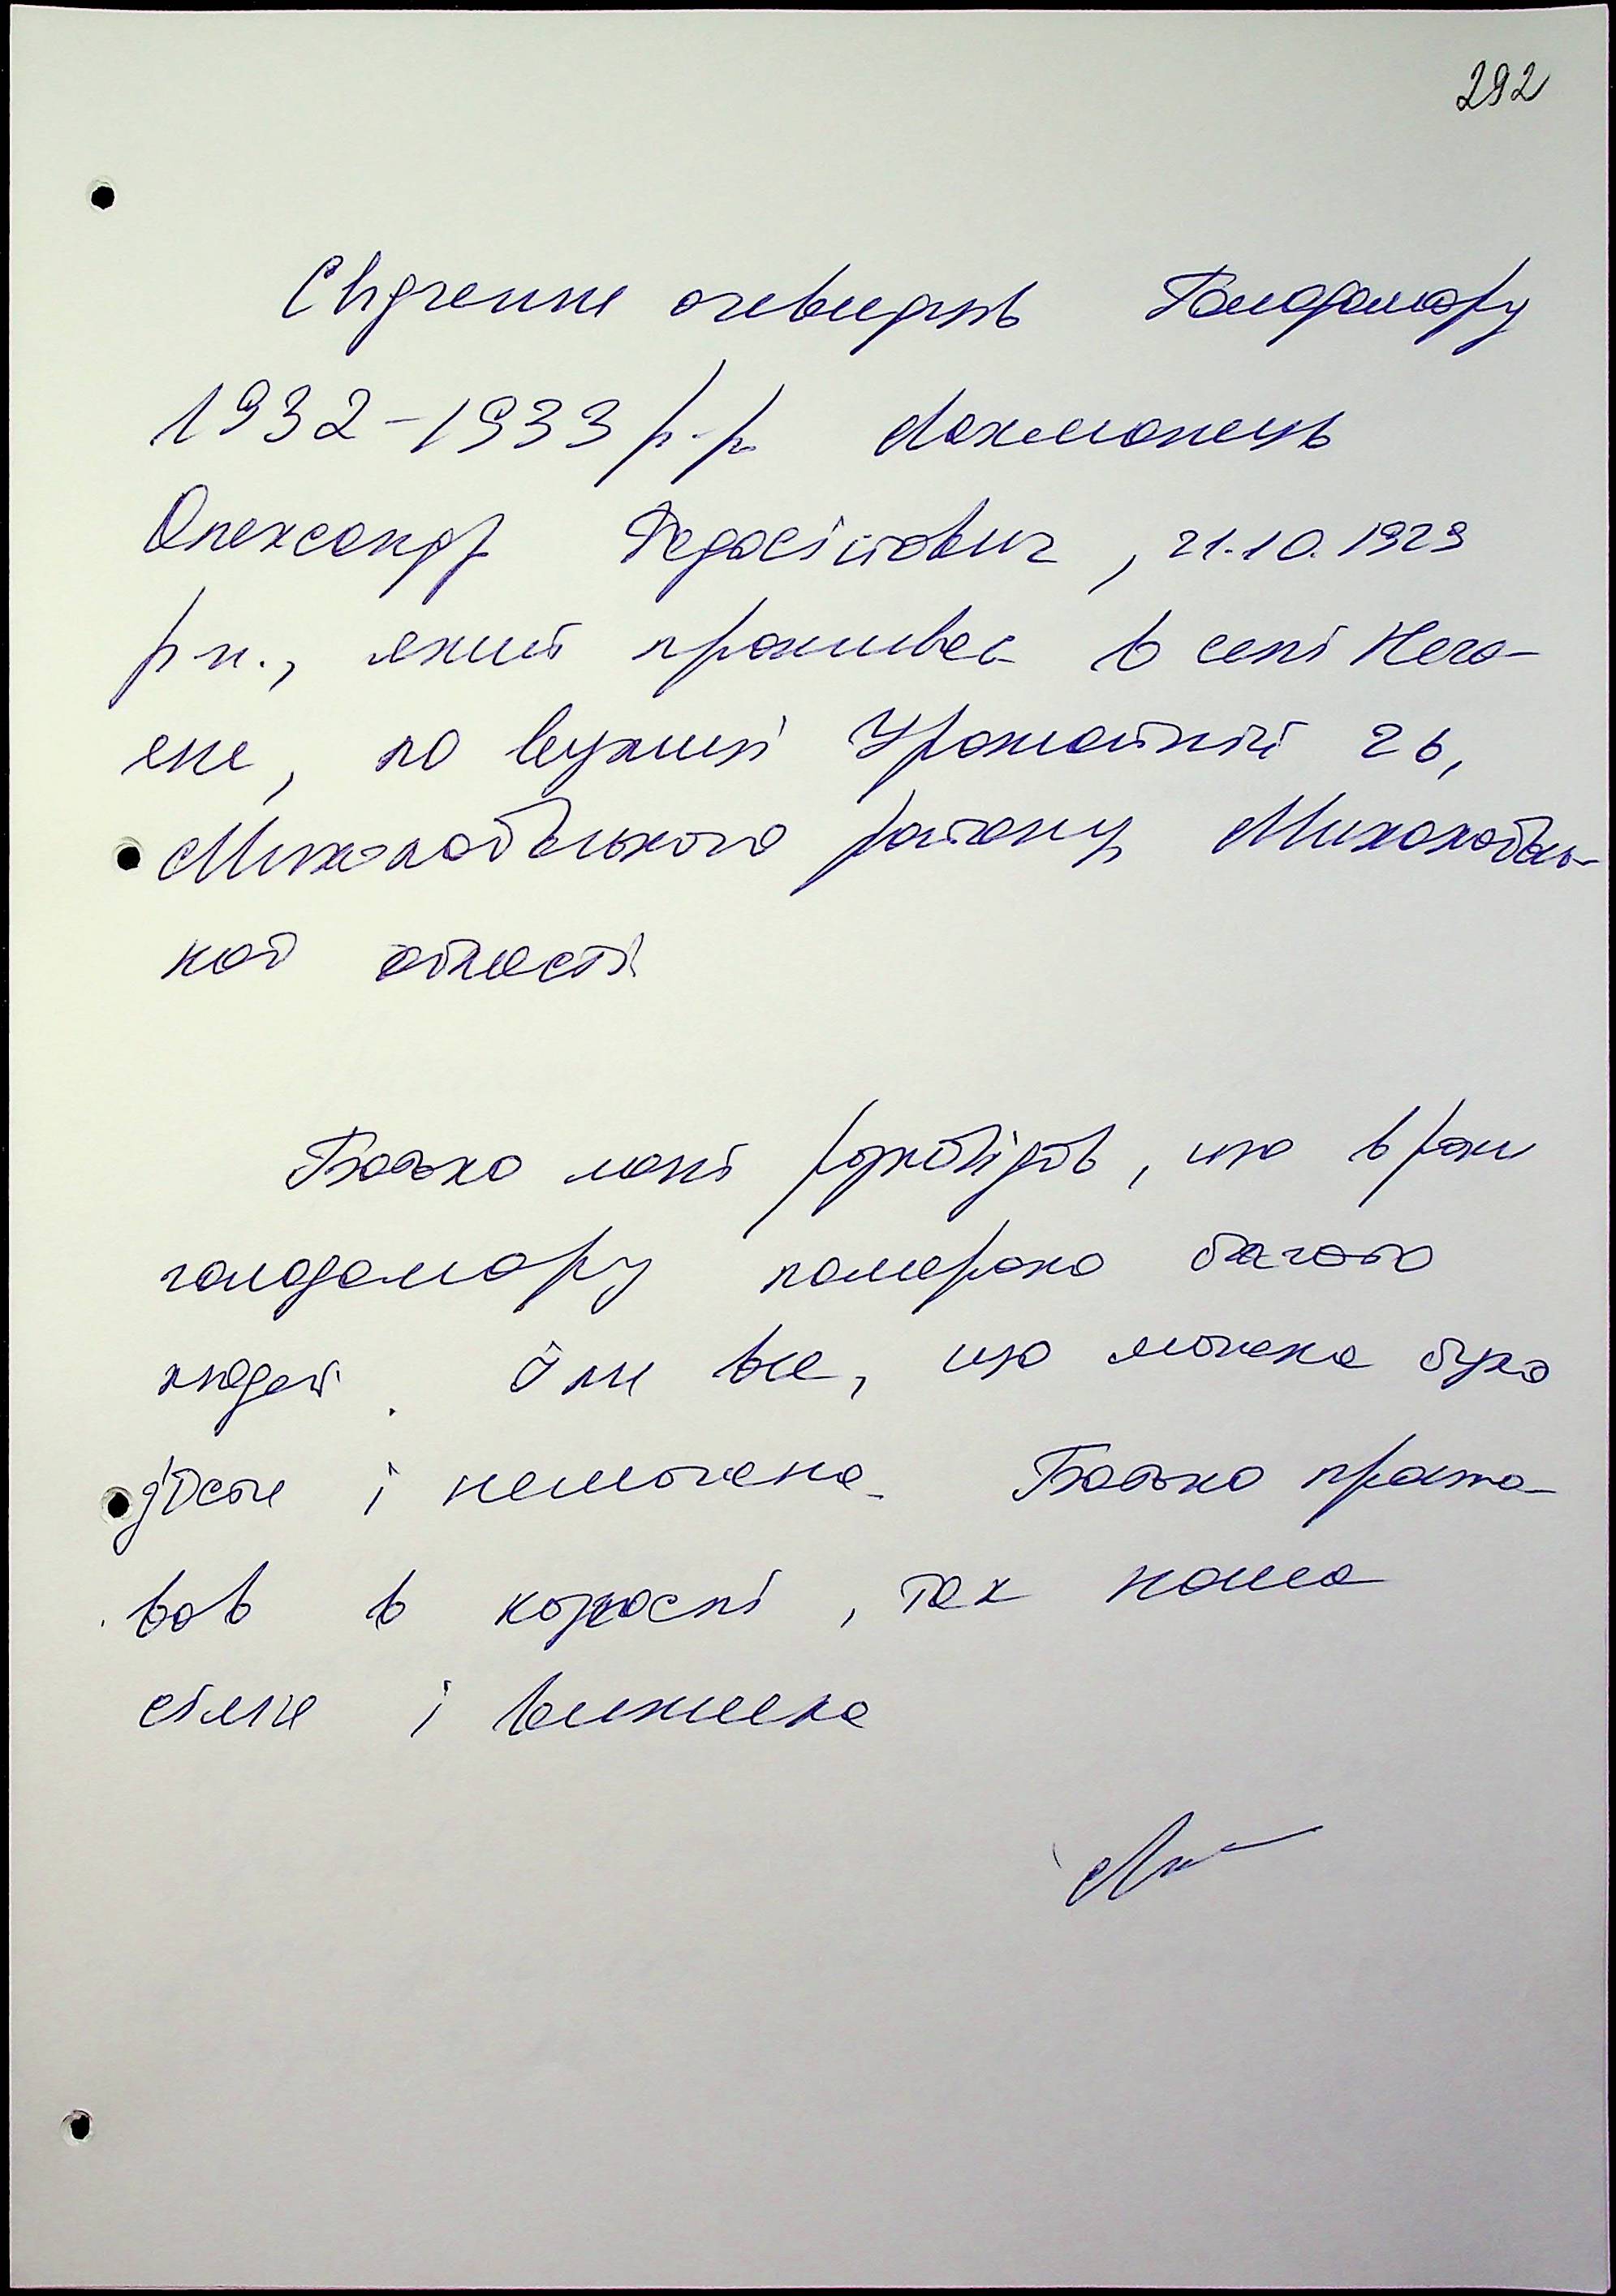 292
Свідчення очевидців Голодомору
1932-1933 р.р Лохманець
Олександр Федосійович, 21.10.1929
р н., який проживає в селі Нечо-
яне, по вулиці Урожайній 26,
Миколаївського району Миколаївсь-
кої області
Батько мені розповідав, що в роки
голодомору померло багато
людей. Їли все, що можна було
з'їсти і неможна. Батько працю-
вав в колгоспі, так наша
сім'я і вижила